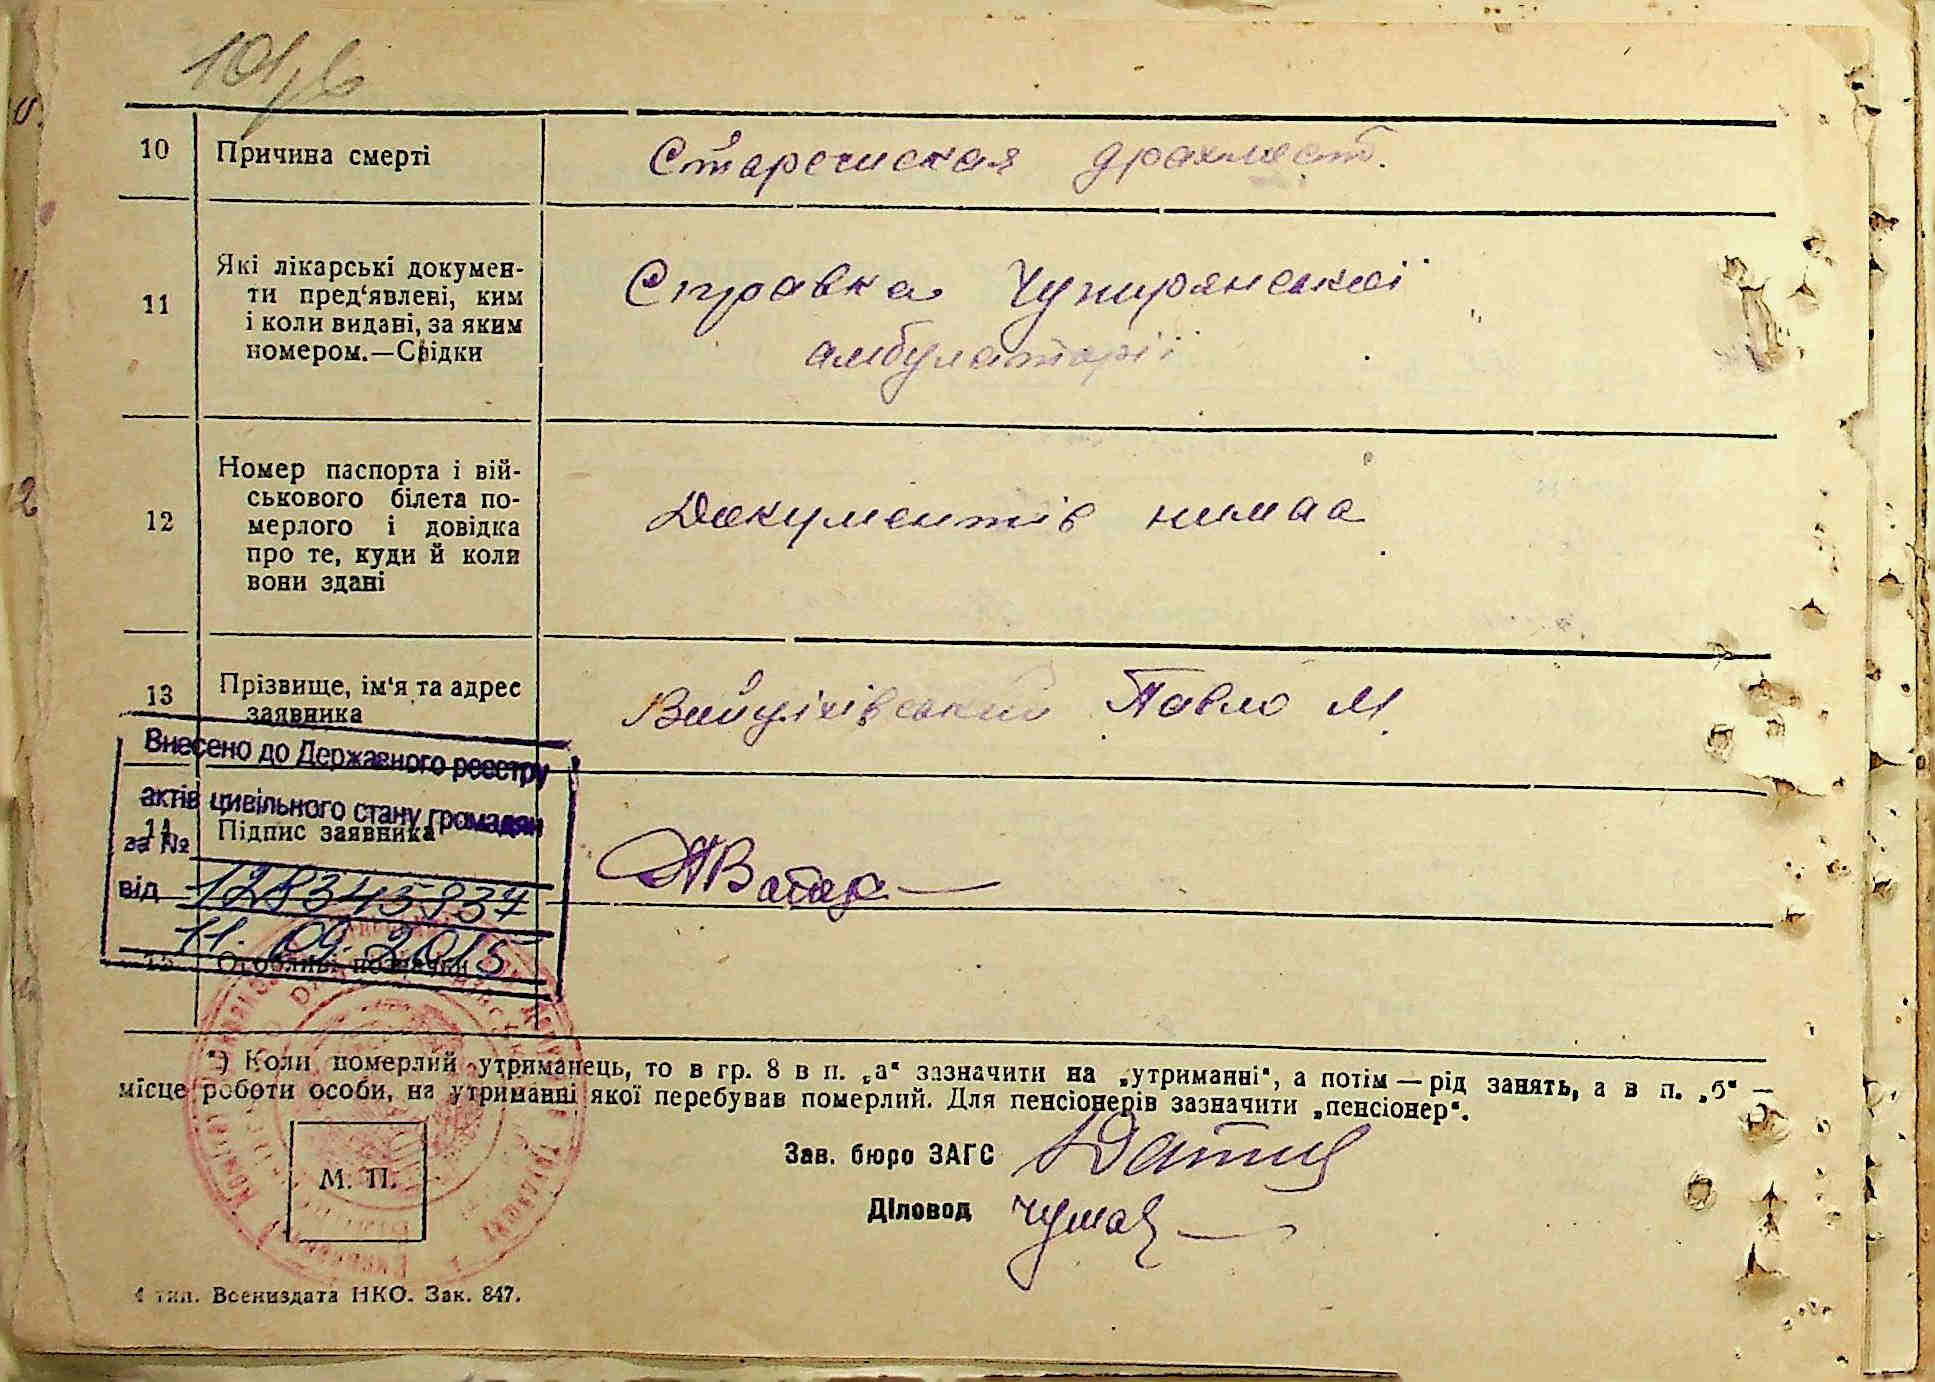 10 Причина смерті Старечиская дряхлост.
11 Які лікарські докумен-
ти пред‘явлені, ким
і коли видані, за яким
номером.—Свідки
Справка Чупирянської
амбулаторії
12 Номер паспорта і вій-
ськового білета по-
мерлого і довідка
про те, куди й коли
вони здані
Документів нимаа
13 Прізвище, ім‘я та адрес
заявника
Павло М.
Внесено до Державного реєстру
актів цивільного стану громадян
за №
від 128345837
11. 09. 2015
14 Підпис заявника
15 Особливі позначки
*) Коли померлий утриманець, то в гр. 8 в п. „а“ зазначити на „утриманні“, а потім — рід занять, а в п. „б“ —
місце роботи особи, на утриманні якої перебував померлий. Для пенсіонерів зазначити „пенсіонер“.
Зав. бюро ЗАГС
М. П.
Діловод
4 тип. Воениздата НКО. Зак. 847.